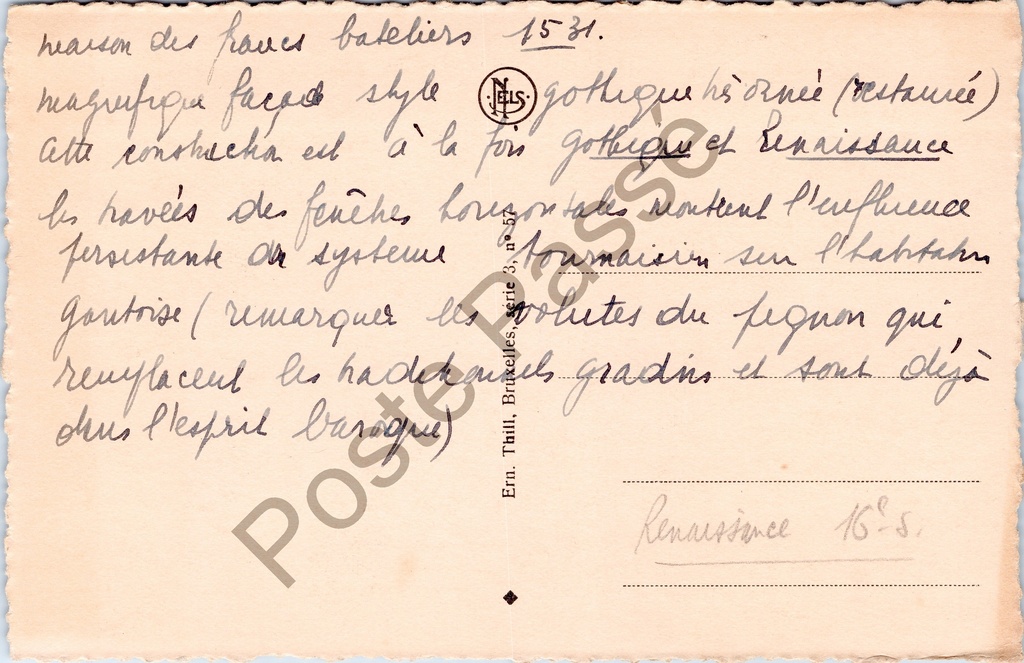 maison des francs bateliers 1531.
magnifique façade style gothique très ornée (restaurée)
Cette construction est à la fois gothique et Renaissance
les travées des fenêtres horizontales montrent l'influence
persistante du système tournaisien sur l'habitation
gantoise (remarquer les volutes du pignon qui
remplacent les traditionnels gradins et sont déjà
dans l'esprit baroque)
NELS
Ern. Thill, Bruxelles, série 3, n° 57
Renaissance 16e s.
Poste Passé